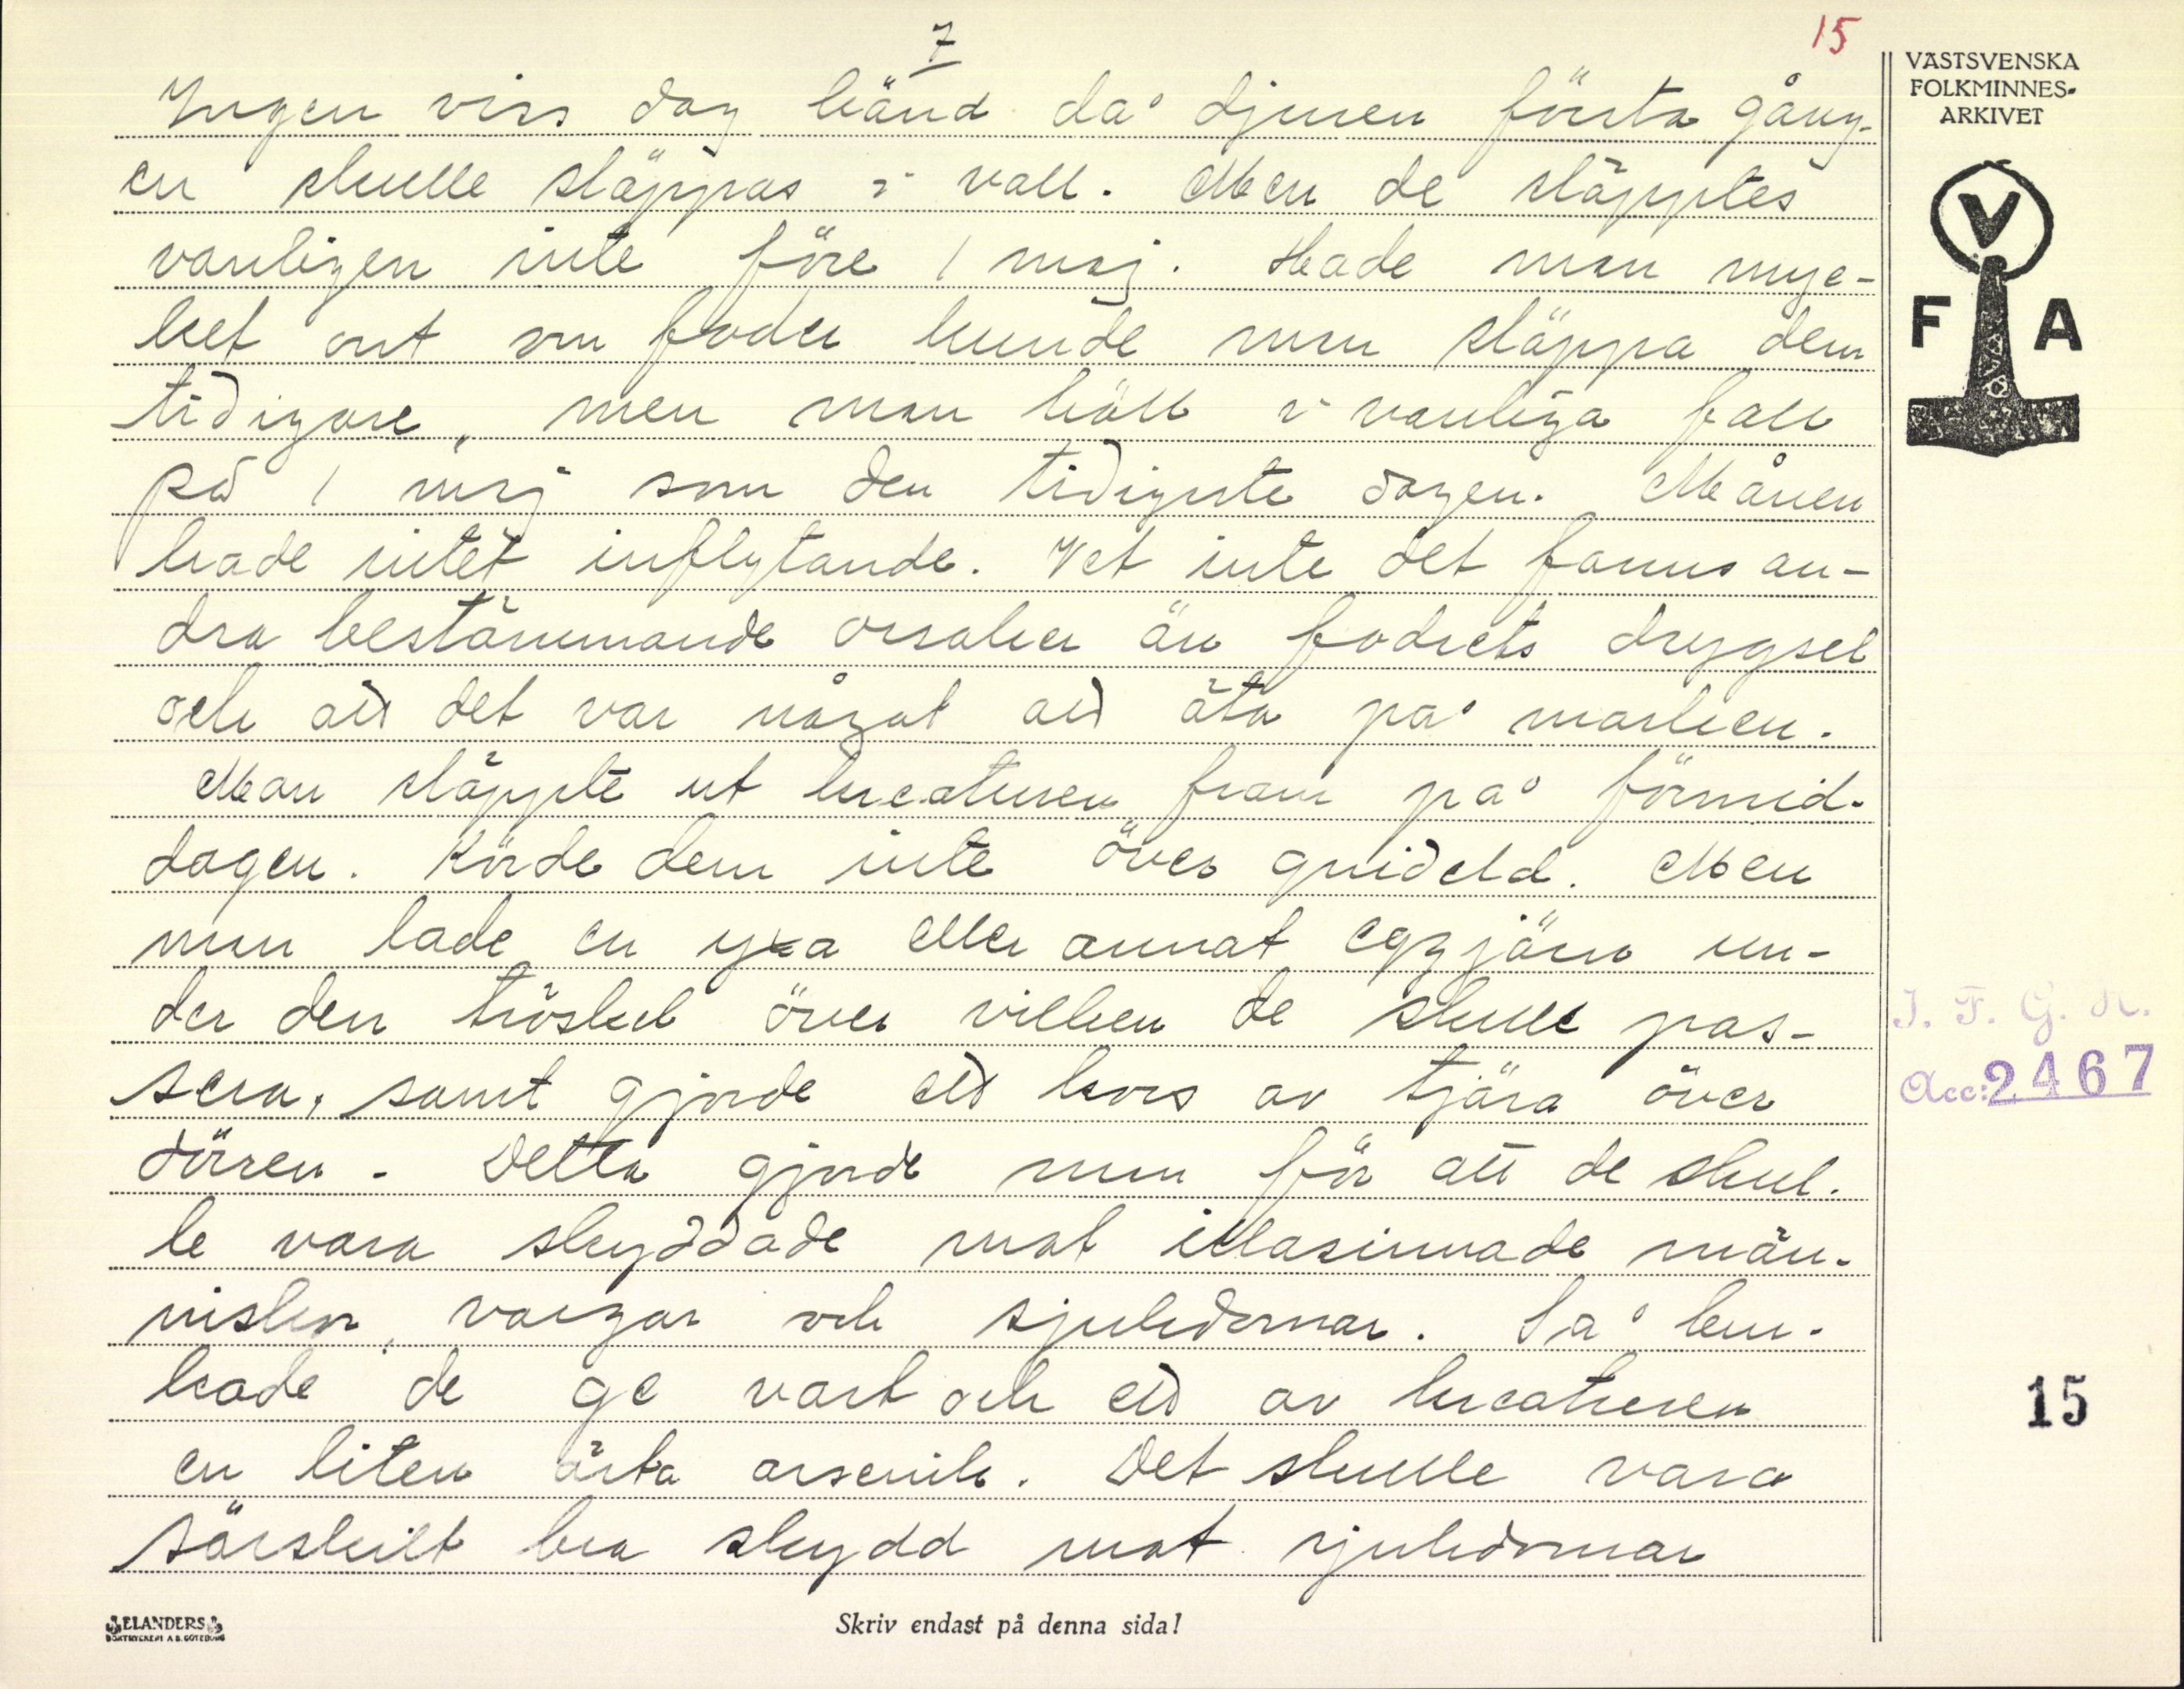 7
15
VÄSTSVENSKA
FOLKMINNES-
ARKIVET
V
F A
Ingen viss dag känd då djuren första gång-
en skulle släppas i vall. Men de släpptes
vanligen inte före 1 maj. Hade man myc-
ket ont om foder kunde man släppa dem
tidigare, men man höll i vanliga fall
på 1 maj som den tidigste dagen. Månen
hade intet inflytande. Vet inte det fanns an-
dra bestämmande orsaker än fodrets drygsel
och att det var något att äta på marken.
Man släppte ut kreaturen fram på förmid-
dagen. Körde dem inte över gnideld. Men
man lade en yxa eller annat eggjärn un-
der den tröskel över vilken de skulle pas-
sera, samt gjorde ett kors av tjära över
dörren. Detta gjorde man för att de skul-
le vara skyddade mot illasinnade män-
niskor, vargar och sjukdomar. Så bru-
kade de ge vart och ett av kreaturen
en liten ärta arsenik. Det skulle vara
särskilt bra skydd mot sjukdomar
I. F. G. H.
Acc: 2467
15
ELANDERS
BOKTRYCKERI A.B. GÖTEBORG
Skriv endast på denna sida!